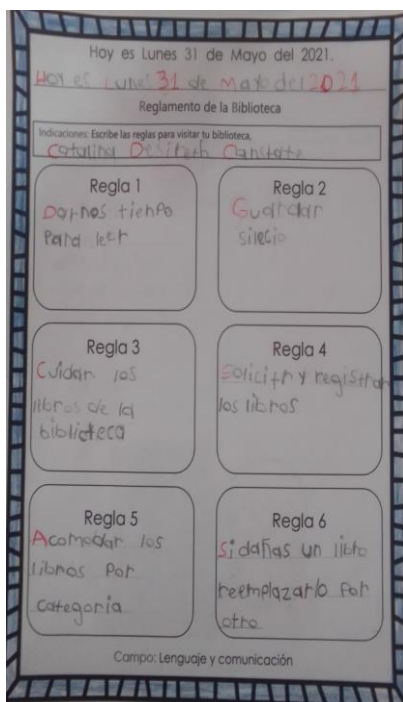 Hoy es Lunes 31 de Mayo del 2021.
Hoy es Lunes 31 de Mayo del 2021
Reglamento de la Biblioteca
Indicaciones: Escribe las reglas para visitar tu biblioteca,
Catalina
Regla 1
Darnos tienpo
para leer
Regla 2
Guardar
silecio
Regla 3
Cuidar los
libros de la
biblioteca
Regla 4
y registrar
los libros
Regla 5
Acomodar los
libros por
categoria
Regla 6
Si dañas un libro
reemplazarlo por
otro
Campo: Lenguaje y comunicación